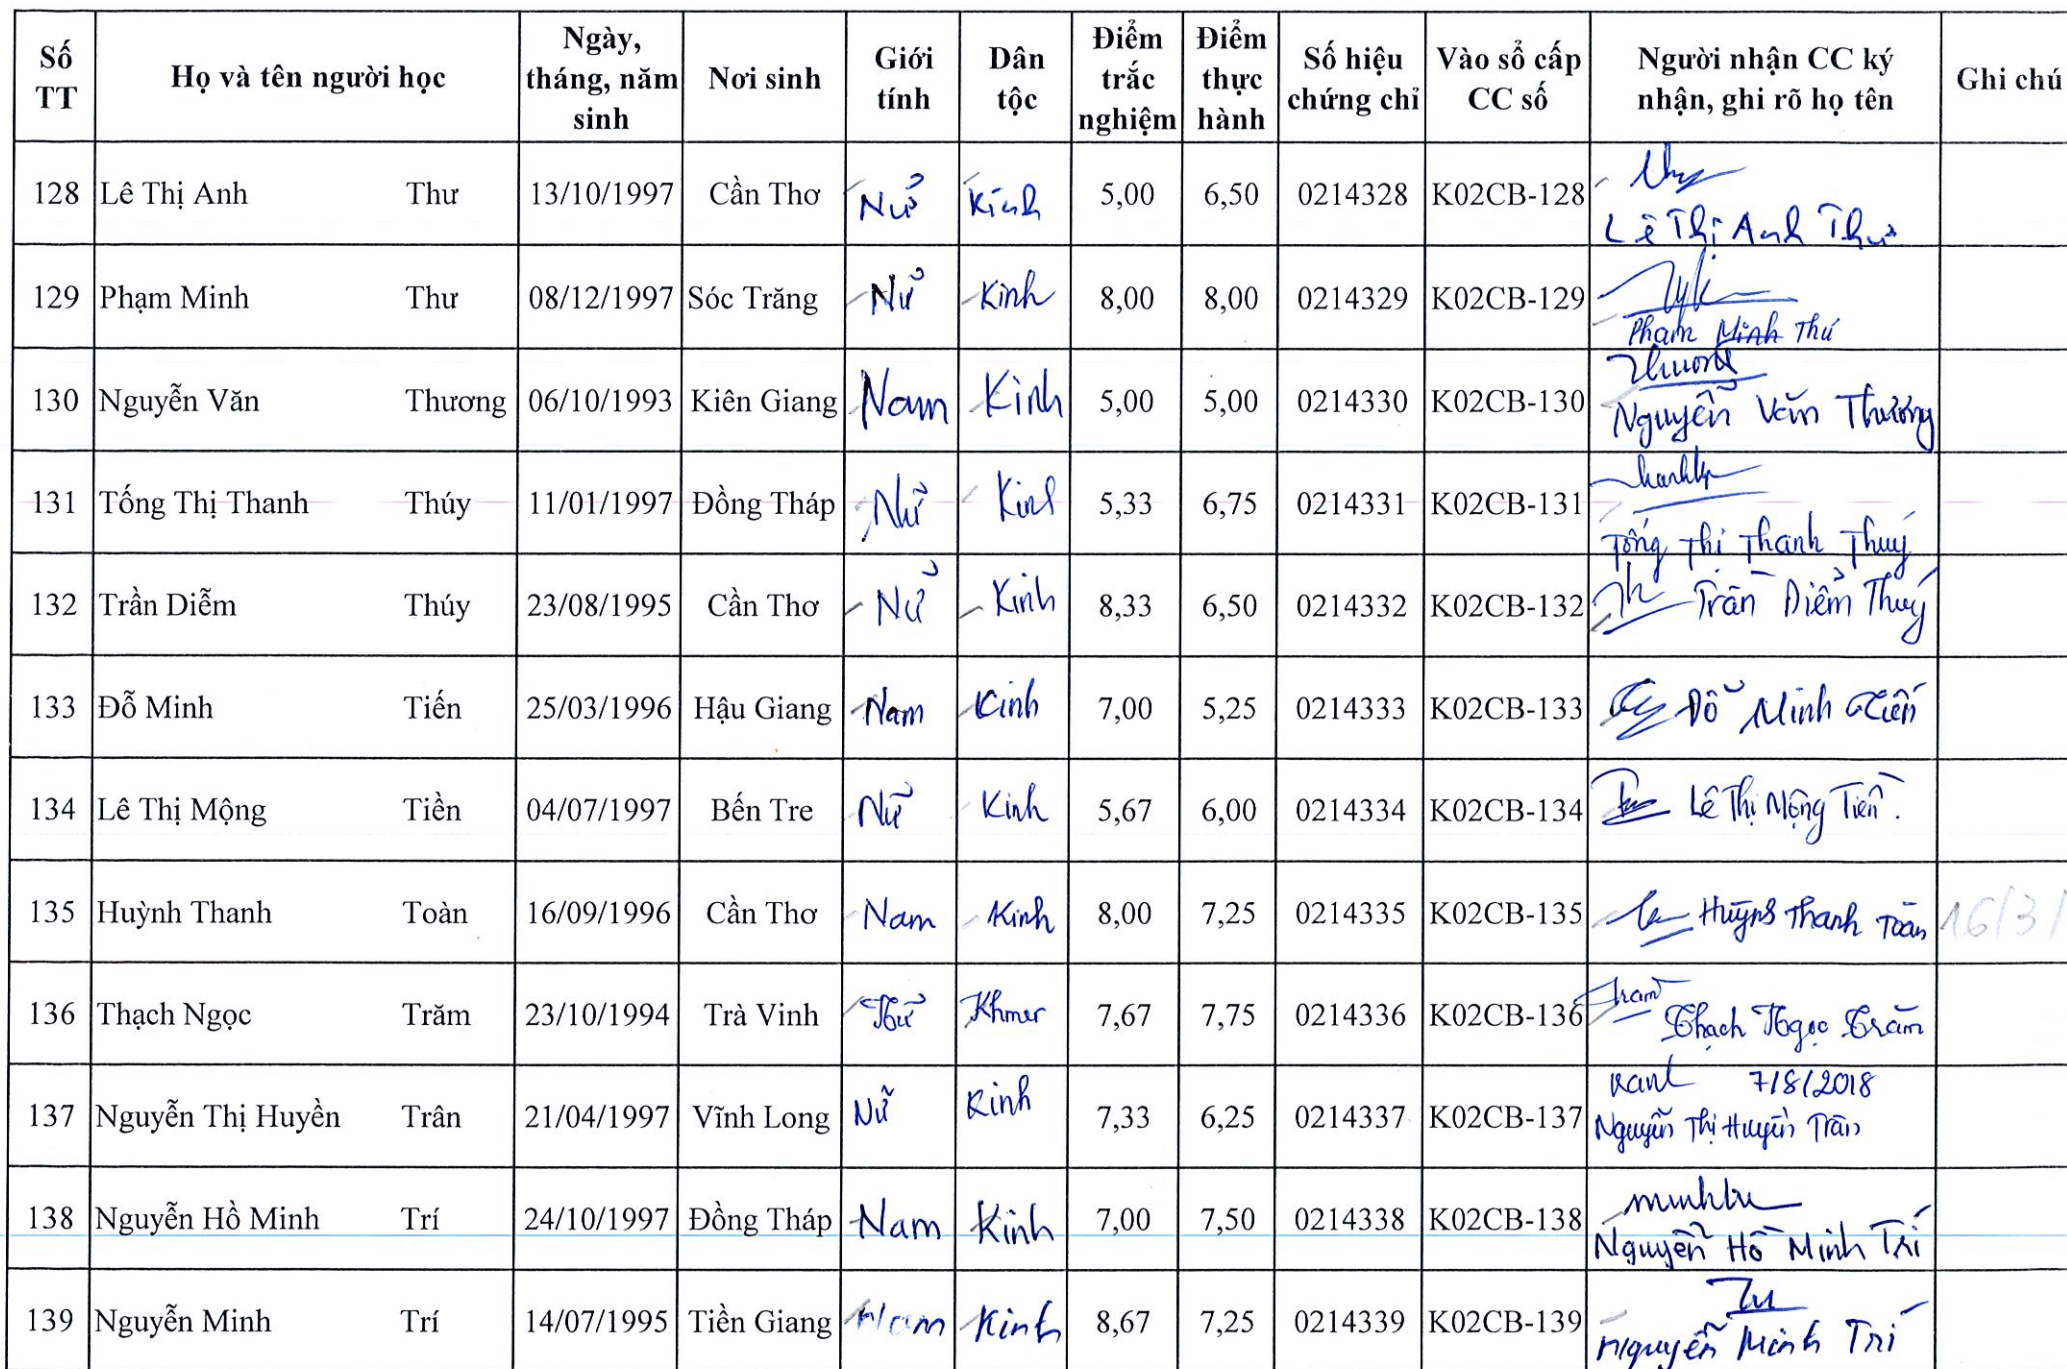 Số TT Họ và tên người học Ngày, tháng, năm sinh Nơi sinh Giới tính Dân tộc Điểm trắc nghiệm Điểm thực hành Số hiệu chứng chỉ Vào sổ cấp CC số Người nhận CC ký nhận, ghi rõ họ tên Ghi chú
128 Lê Thị Anh Thư 13/10/1997 Cần Thơ Nữ Kinh 5,00 6,50 0214328 K02CB-128
Lê Thị Anh Thư
129 Phạm Minh Thư 08/12/1997 Sóc Trăng Nữ Kinh 8,00 8,00 0214329 K02CB-129
Phạm Minh Thư
130 Nguyễn Văn Thương 06/10/1993 Kiên Giang Nam Kinh 5,00 5,00 0214330 K02CB-130 Thương
Nguyễn Văn Thương
131 Tống Thị Thanh Thúy 11/01/1997 Đồng Tháp Nữ Kinh 5,33 6,75 0214331 K02CB-131
Tống Thị Thanh Thuý
132 Trần Diễm Thúy 23/08/1995 Cần Thơ Nữ Kinh 8,33 6,50 0214332 K02CB-132 Trần Diễm Thuý
133 Đỗ Minh Tiến 25/03/1996 Hậu Giang Nam Kinh 7,00 5,25 0214333 K02CB-133 Đỗ Minh Tiến
134 Lê Thị Mộng Tiền 04/07/1997 Bến Tre Nữ Kinh 5,67 6,00 0214334 K02CB-134 Lê Thị Mộng Tiền.
135 Huỳnh Thanh Toàn 16/09/1996 Cần Thơ Nam Kinh 8,00 7,25 0214335 K02CB-135 Huỳnh Thanh Toàn 16/3/
136 Thạch Ngọc Trăm 23/10/1994 Trà Vinh Nữ Khmer 7,67 7,75 0214336 K02CB-136 Tram
Thạch Ngọc Trăm
137 Nguyễn Thị Huyền Trân 21/04/1997 Vĩnh Long Nữ Kinh 7,33 6,25 0214337 K02CB-137 7/8/2018
Nguyễn Thị Huyền Trân
138 Nguyễn Hồ Minh Trí 24/10/1997 Đồng Tháp Nam Kinh 7,00 7,50 0214338 K02CB-138
Nguyễn Hồ Minh Trí
139 Nguyễn Minh Trí 14/07/1995 Tiền Giang Nam Kinh 8,67 7,25 0214339 K02CB-139
Nguyễn Minh Trí